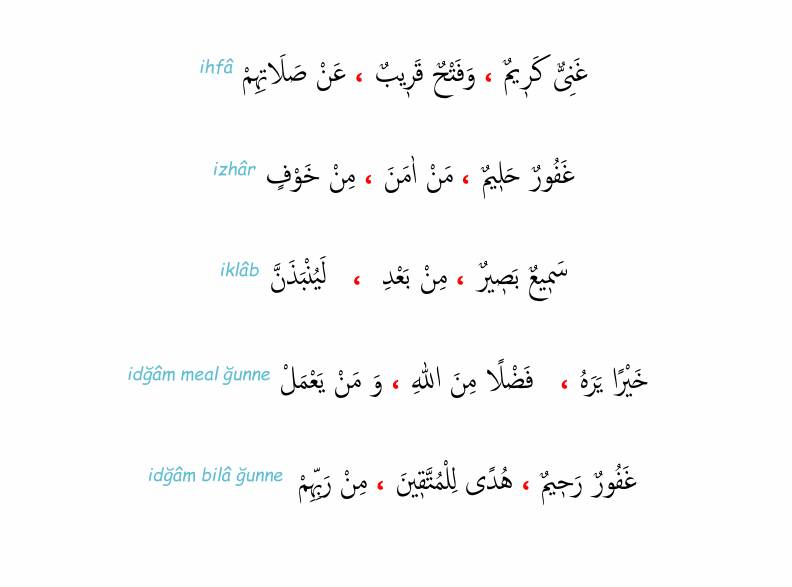 غَنِىٌّ كَرٖيمٌ ، وَفَتْحٌ قَرٖيبٌ ، عَنْ صَلَاتِهِمْ ihfâ
غَفُورٌ حَلٖيمٌ ، مَنْ اٰمَنَ ، مِنْ خَوْفٍ izhâr
سَمٖيعٌ بَصٖيرٌ ، مِنْ بَعْدِ ، لَيُنْبَذَنَّ iklâb
خَيْرًا يَرَهُ ، فَضْلًا مِنَ اللهِ ، وَ مَنْ يَعْمَلْ idğâm meal ğunne
غَفُورٌ رَحٖيمٌ ، هُدًى لِلْمُتَّقٖينَ ، مِنْ رَبِّهِمْ idğâm bilâ ğunne